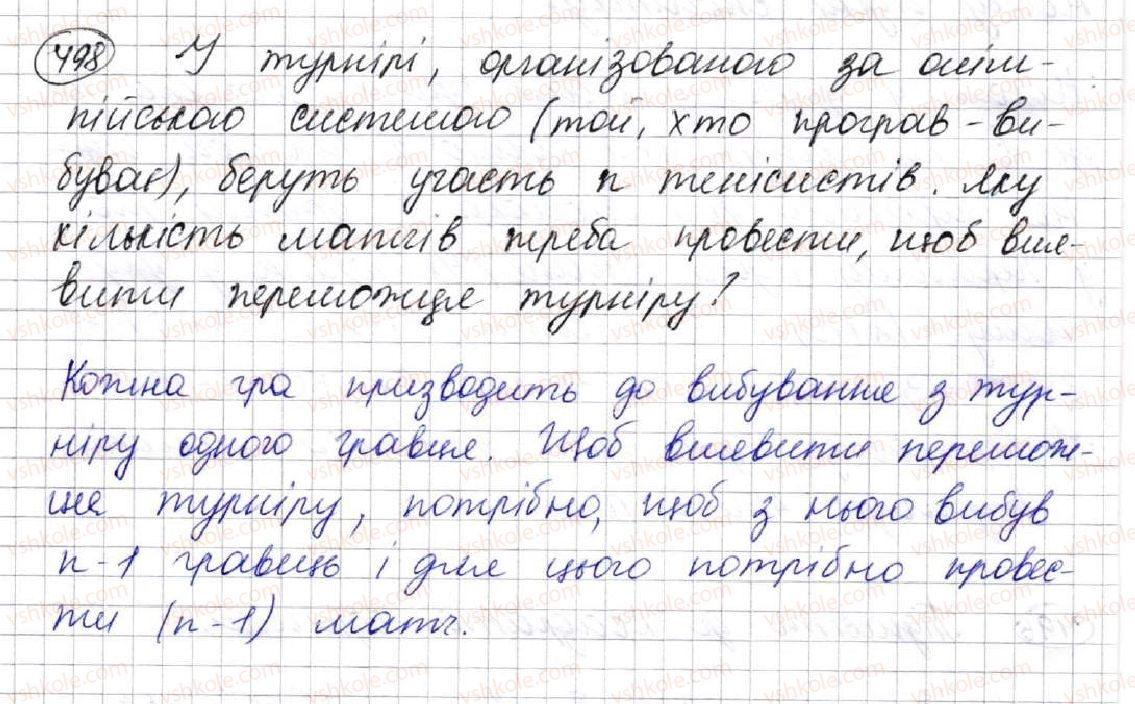 498 У турнірі, організованого за олім-
пійською системою (той, хто програв - ви-
буває), беруть участь n тенісистів. Яку
кількість матчів треба провести, щоб вия-
вити переможця турніру?
Кожна гра призводить до вибування з тур-
ніру одного гравця. Щоб виявити перемож-
ця турніру, потрібно, щоб з нього вибув
n-1 гравець і для цього потрібно провес-
ти (n-1) матч.